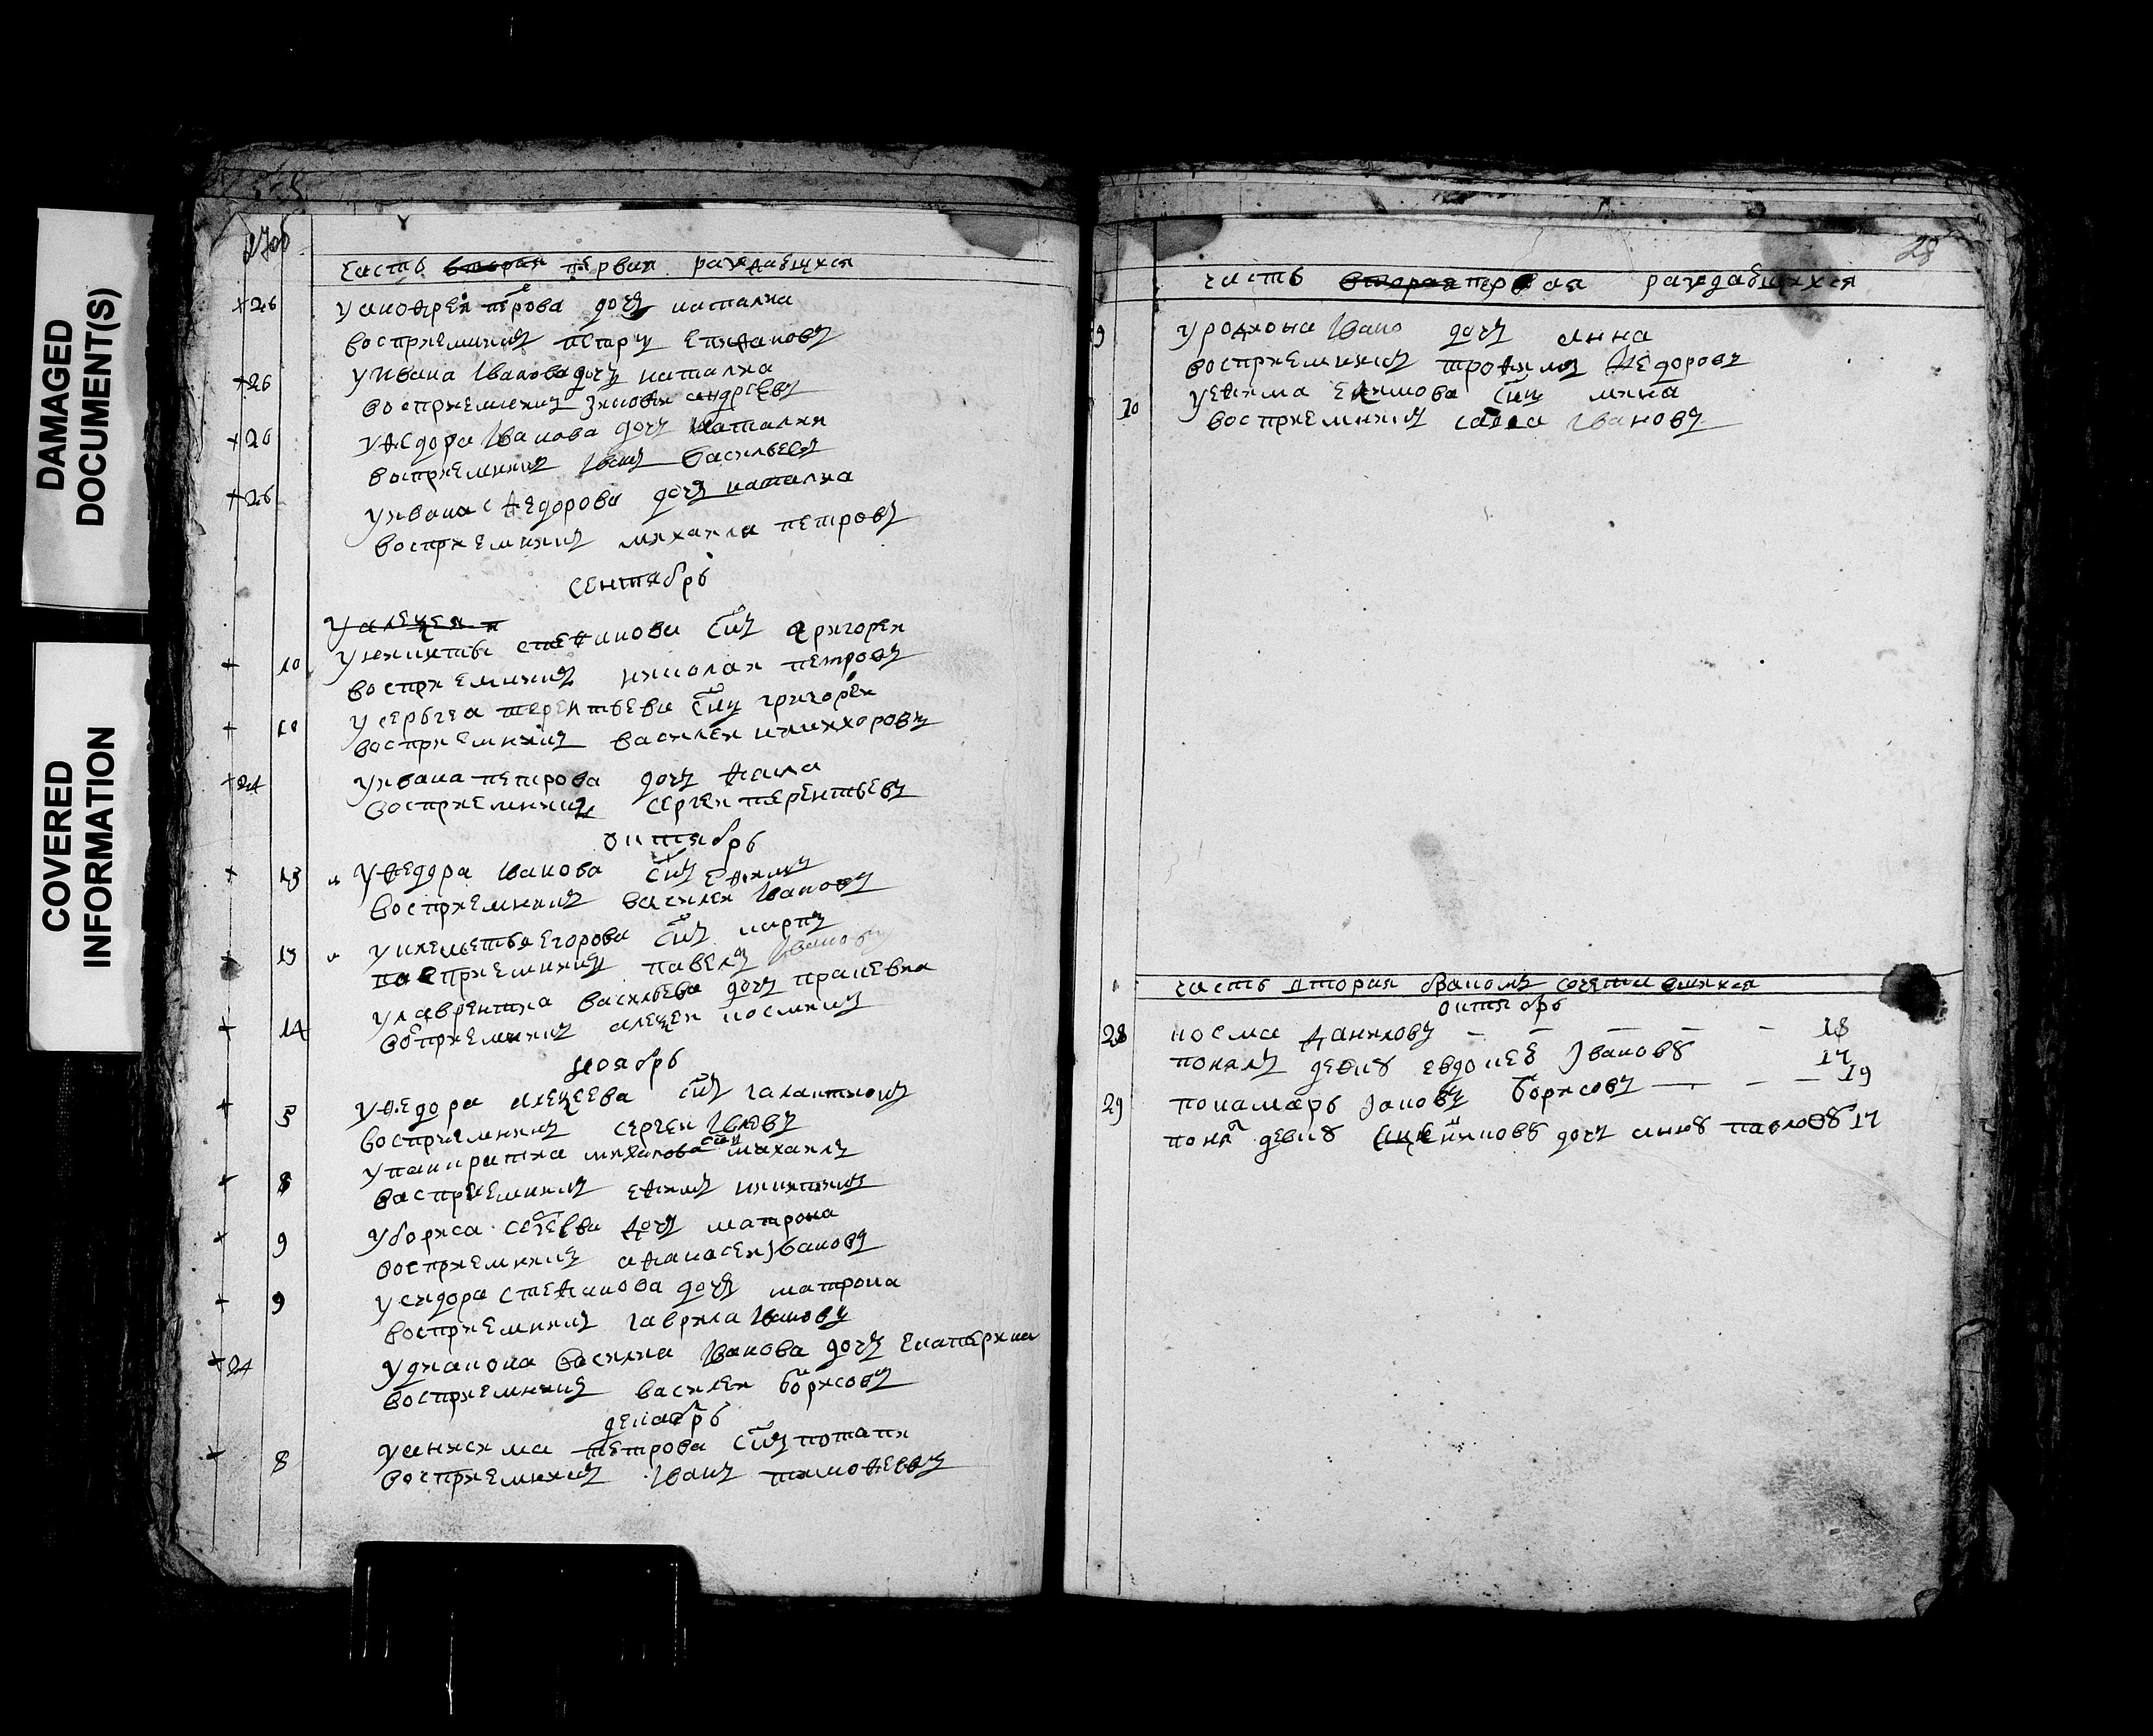 DAMAGED
DOCUMENT(S)
COVERED
INFORMATION
часть вторая первая раждающихся
26 У андрея петрова дочъ наталиа
восприемникъ петръ епифановъ
26 У ивана Іванова дочъ наталиа
восприемникъ зиновеи андреевъ
26 У федора Іванова дочъ наталия
восприемникъ Іванъ васильевъ
26 У ивана федорова дочъ наталиа
восприемникъ михаила петровъ
сентябрь
У алеѯея
10 У никиты стефанова сынъ григореи
восприемникъ николаи петровъ
10 У сергъея терентьева сынъ григореи
восприемникъ василеи никифоровъ
24 У ивана петрова дочъ
восприемникъ сергеи терентьевъ
октябрь
13 У федора Іванова сынъ ефимъ
восприемникъ василеи Івановъ
13 У климентья егорова сынъ карпъ
васприемникъ павелъ Івановъ
14 У лаврентиа васильева дочъ праскевиа
восприемникъ алеѯеи космикъ
ноябрь
5 У федора алеѯеева сынъ галактионъ
восприемникъ сергеи
8 У панкратиа сынъ михаилъ
васприемникъ ефимъ никитинъ
9 У бориса сегеева дочъ матрона
восприемникъ афанасеи Івановъ
9 У сидора стефанова дочъ матрона
восприемникъ гаврила Івановъ
24 У диакона василиа Іванова дочъ екатерина
восприемникъ василеи борисовъ
декабрь
8 У анисима петрова сынъ потапи
восприемникъ Іванъ тимофеевъ
28
часть вторая первая раждающихся
9 У родиона Івано дочъ анна
восприемникъ трофимъ федоровъ
10 У ефима екимова сынъ мина
восприемникъ савва Івановъ
часть вторая бракомъ сочетавшихся
октябрь
28 косма даниловъ 18
понялъ девку евдокею Іванову 17
29 понамарь Іаковъ борисовъ 19
понялъ девку дочъ анну павлову 17